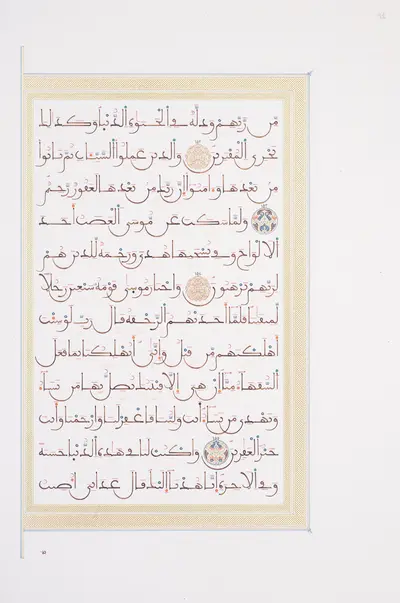 مِّن رَّبِّهِمْ وَذِلَّةٌ فِي الْحَيَوٰةِ الدُّنْيَا وَكَذَٰلِكَ
نَجْزِي الْمُفْتَرِينَ وَالَّذِينَ عَمِلُوا السَّيِّـَٔاتِ ثُمَّ تَابُوا
مِن بَعْدِهَا وَءَامَنُوا إِنَّ رَبَّكَ مِن بَعْدِهَا لَغَفُورٌ رَّحِيمٌ
وَلَمَّا سَكَتَ عَن مُّوسَى الْغَضَبُ أَخَذَ
الْأَلْوَاحَ وَفِي نُسْخَتِهَا هُدًى وَرَحْمَةٌ لِّلَّذِينَ هُمْ
لِرَبِّهِمْ يَرْهَبُونَ وَاخْتَارَ مُوسَىٰ قَوْمَهُ سَبْعِينَ رَجُلًا
لِّمِيقَٰتِنَا فَلَمَّا أَخَذَتْهُمُ الرَّجْفَةُ قَالَ رَبِّ لَوْ شِئْتَ
أَهْلَكْتَهُم مِّن قَبْلُ وَإِيَّٰيَ أَتُهْلِكُنَا بِمَا فَعَلَ
السُّفَهَاءُ مِنَّا إِنْ هِيَ إِلَّا فِتْنَتُكَ تُضِلُّ بِهَا مَن تَشَاءُ
وَتَهْدِي مَن تَشَاءُ أَنتَ وَلِيُّنَا فَاغْفِرْ لَنَا وَارْحَمْنَا وَأَنتَ
خَيْرُ الْغَٰفِرِينَ وَاكْتُبْ لَنَا فِي هَٰذِهِ الدُّنْيَا حَسَنَةً
وَفِي الْأَخِرَةِ إِنَّا هُدْنَا إِلَيْكَ قَالَ عَذَابِي أُصِيبُ